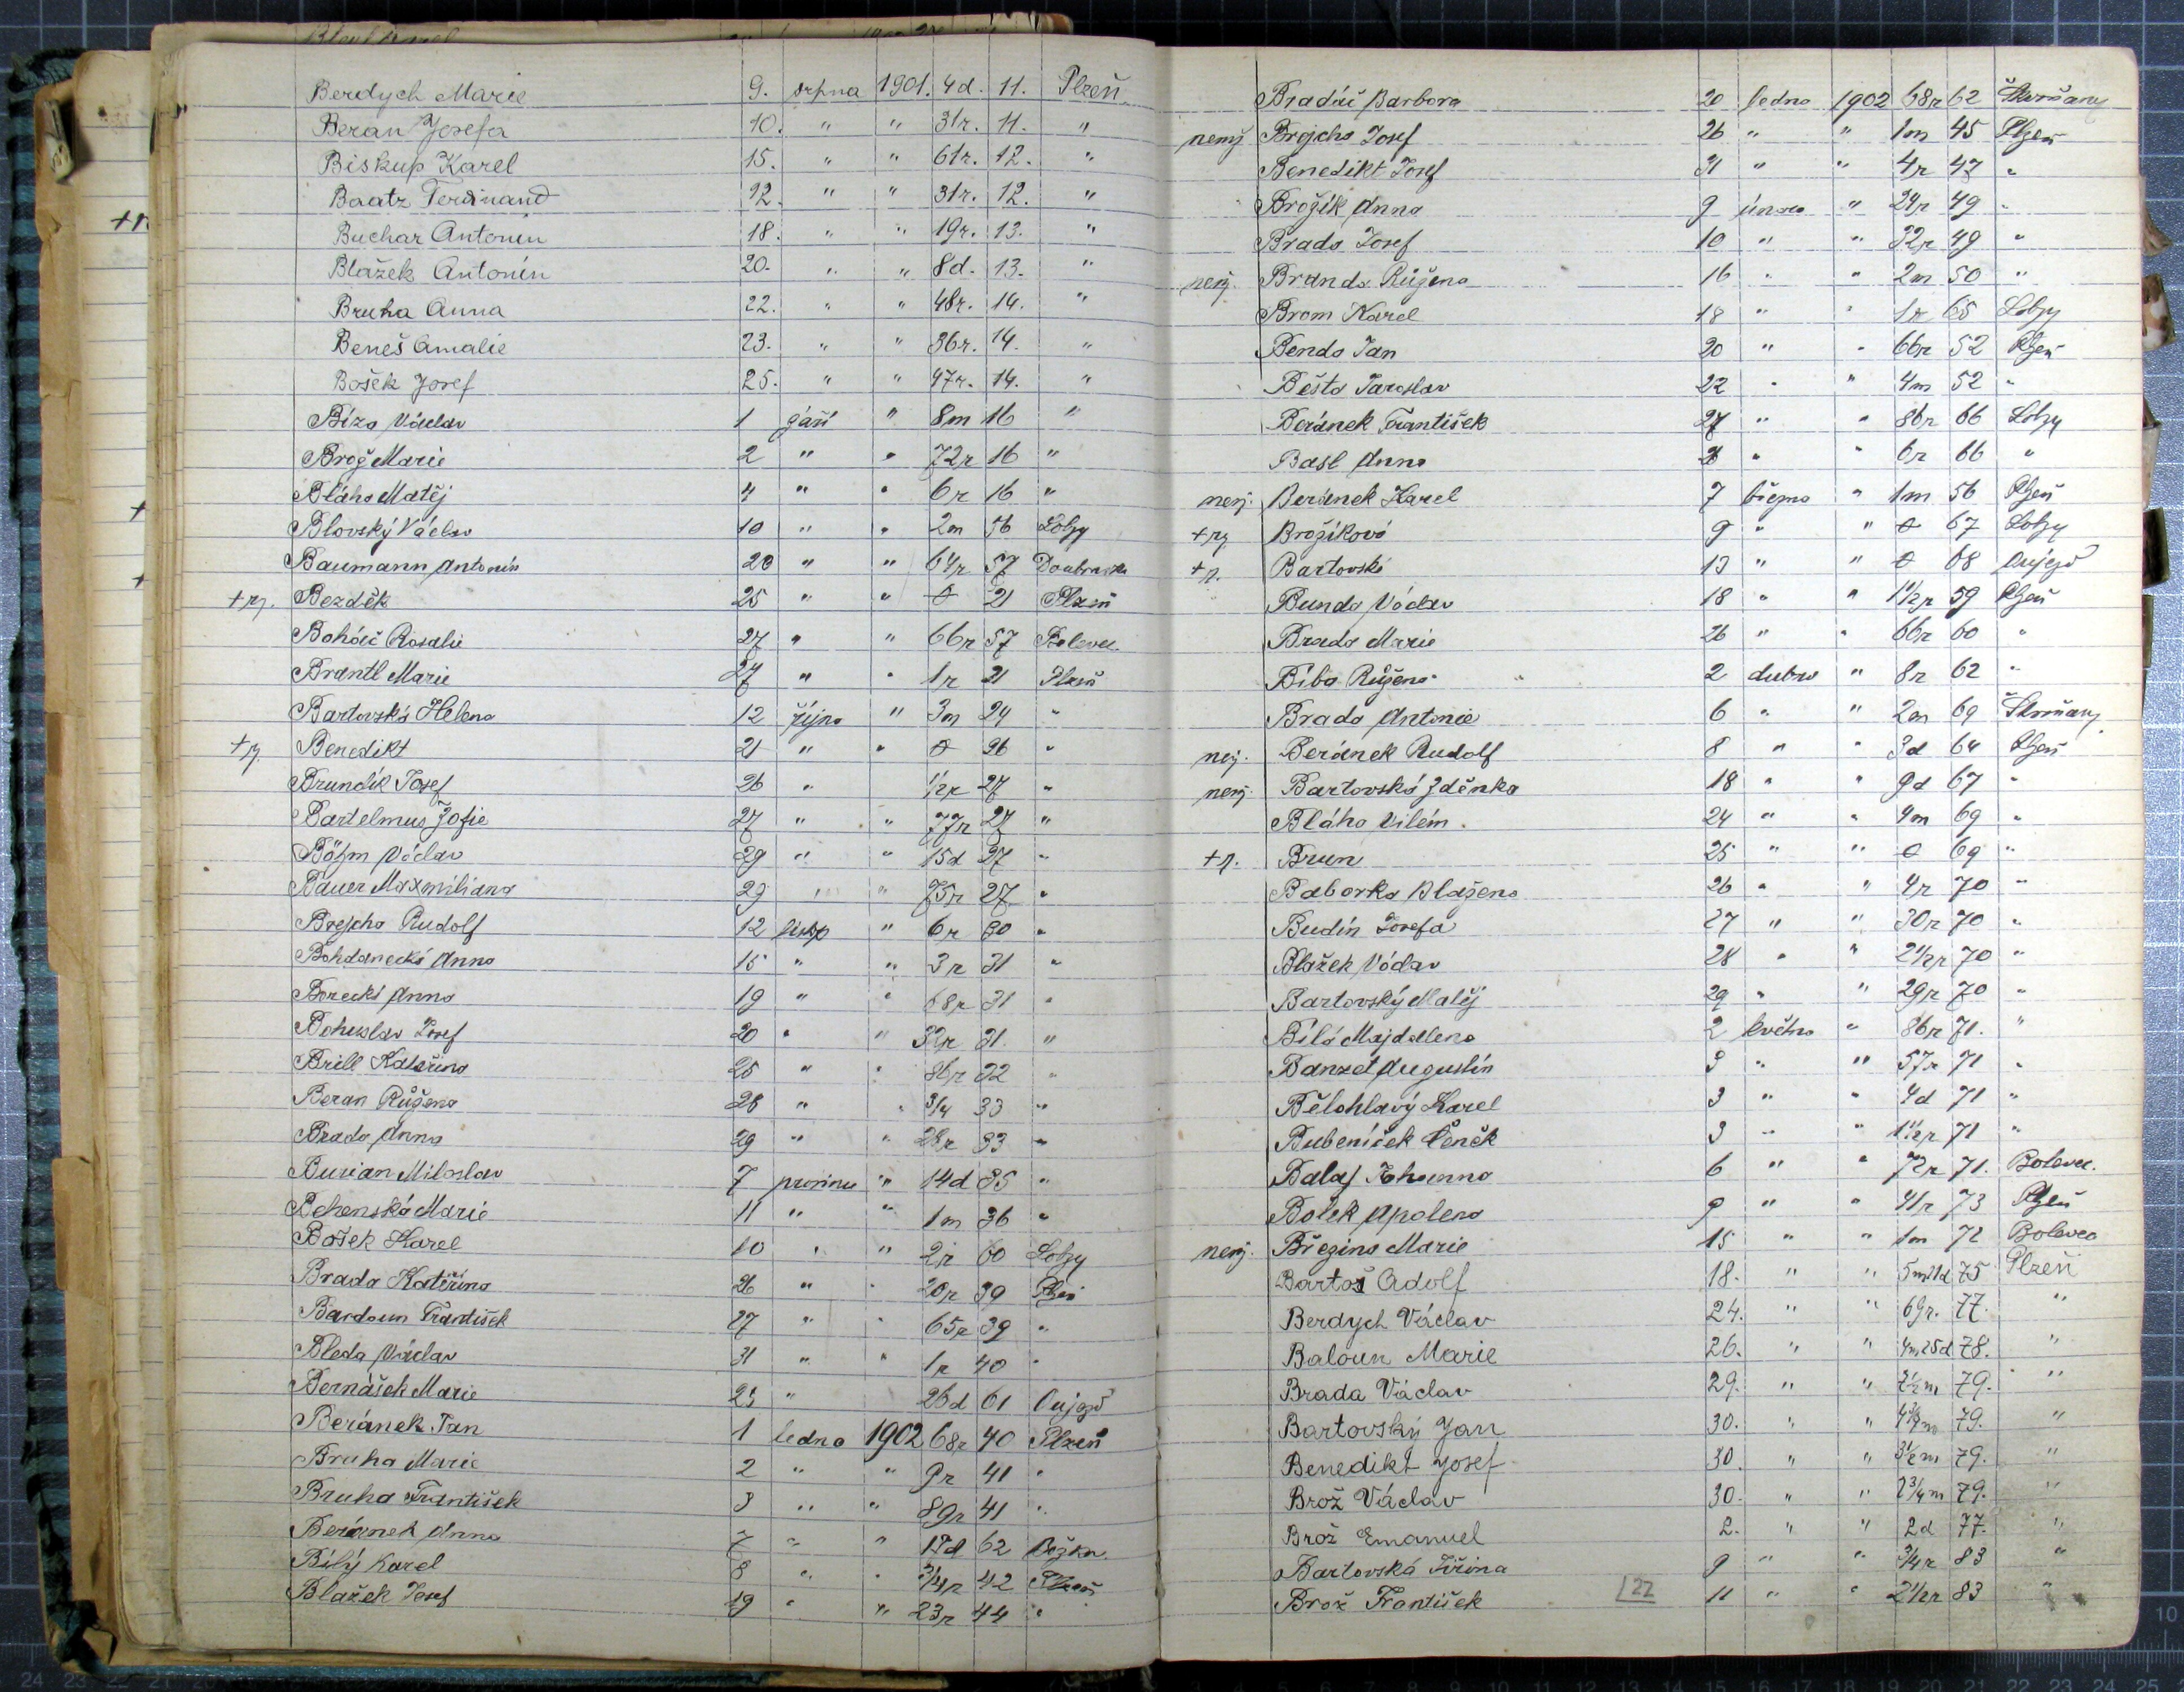 Berdych Marie 9. srpna 1901. 4d. 11. Plzeň
Beran Josefa 10. " " 31r. 11. "
Biskup Karel 15. " " 61r. 12. "
Baatz Ferdinand 12. " " 31r. 12. "
Buchar Antonín 18. " " 19r. 13. "
Blažek Antonín 20. " " 8d. 13. "
Bruha Anna 22. " " 48r. 14. "
Beneš Amalie 23. " " 36r. 14. "
Bošek Josef 25. " " 47r. 14. "
Bízo Václav 1 září " 8m 16 "
Brož Marie 2 " " 72r 16 "
Bláha Matěj 4 " " 6r 16 "
Blovský Václav 10 " " 2m 56 Lobzy
Baumann Antonín 20 " " 64r 57 Doubravka
Bezděk 25 " " 0 21 Plzeň
Boháč Rosalie 27 " " 66r 57 Bolevec
Brantl Marie 27 " " 1r 21 Plzeň
Bartovská Helena 12 října " 3m 24 "
Benedikt 21 " " 0 26 "
Brundík Josef 26 " 1/2r 27 "
Bartelmus Žofie 27 " " 77r 27 "
Böhm Václav 29 " " 15d 27 "
Bauer Maxmiliana 29 " " 75r 27 "
Brejcha Rudolf 12 listop " 6r 30 "
Bohdanecká Anna 15 " " 3r 31 "
Borecká Anna 19 " " 68r 31 "
Bohuslav Josef 20 " " 32r 31. "
Brill Kateřina 25 " " 86r 32 "
Beran Růžena 28 " " 3/4 33 "
Brada Anna 29 " " 28r 33 "
Burian Miloslav 7 prosince " 14d 35 "
Behenská Marie 11 " " 1m 36 "
Bošek Karel 10 " " 2r 60 Lobzy
Brada Kateřina 26 " " 20r 39 Plzeň
Bardoun František 27 " " 65r 39 "
Bleda Václav 31 " " 1r 40 "
Bernášek Marie 23 " 26d 61 Oujezd
Beránek Jan 1 ledna 1902 68r 40 Plzeň
Bruha Marie 2 " " 9r 41 "
Bruha František 3 " " 89r 41 "
Beránek Anna 7 " " 17d 62 Božkov
Bílý Karel 8 " " 3/4r 42 Plzeň
Blažek Josef 19 " " 23r 44 "
Bradáč Barbora 20 ledna 1902 68r 62 Skvrňany
Brejcha Josef 26 " " 1m 45 Plzeň
Benedikt Josef 31 " " 4r 47 "
Brožík Anna 9 února " 24r 49 "
Brada Josef 10 " " 32r 49 "
Branda Růžena 16 " " 2m 50 "
Brom Karel 18 " " 1r 65 Lobzy
Benda Jan 20 " " 66r 52 Plzeň
Běsta Jaroslav 22 " " 4m 52 "
Beránek František 27 " " 86r 66 Lobzy
Basl Anna " " 6r 66 "
Beránek Karel 7 března " 1m 56 Plzeň
Brožíková 9 " " 0 67 Lobzy
Bartovská 13 " " 0 68 Oujezd
Bunda Václav 18 " " 1 1/2r 59 Plzeň
Brada Marie 26 " " 66r 60 "
Bíba Růžena 2 dubna " 8r 62 "
Brada Antonie 6 " " 2m 69 Skvrňany
Beránek Rudolf 8 " " 3d 64 Plzeň
Bartovská Zdeňka 18 " " 9d 67 "
Bláha Vilém 24 " " 4m 69 "
Brun 25 " " 0 69 "
Baborka Blažena 26 " " 4r 70 "
Budín Josefa 27 " " 30r 70 "
Blažek Václav 28 " " 2 1/2r 70 "
Bartovský Matěj 29 " " 29r 70 "
Bílá Majdalena 2 května " 86r 71. "
Banzet Augustín 3 " " 57r 71 "
Bělohlavý Karel 3 " " 4d 71 "
Bubeníček Čeněk 3 " " 1 1/2r 71 "
Balaj 6 " " 72r 71. Bolevec
Bolek Apolena 9 " " 41r 73 Plzeň
Březina Marie 15 " " 1m 72 Bolevec
Bartoš Adolf 18. " " 5m 21d 75 Plzeň
Berdych Václav 24. " " 69r. 77. "
Baloun Marie 26. " " 4m 25d 78. "
Brada Václav 29. " " 2 1/2 m 79. "
Bartovský Jan 30. " " 4 3/4 m 79. "
Benedikt Josef 30. " " 3 1/2 m 79. "
Brož Václav 30. " " 2 3/4 m 79. "
Brož Emanuel 2. " " 2d 77. "
Bartovská Jiřina 9 " " 3/4r 83 "
Brož František 22 11 " " 2 1/2r 83 "